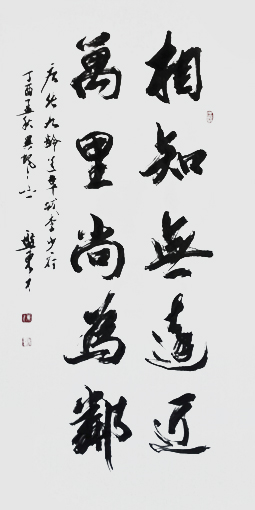 相知無遠近
萬里尚為鄰
唐張九齡送韋城李少府
丁酉孟秋